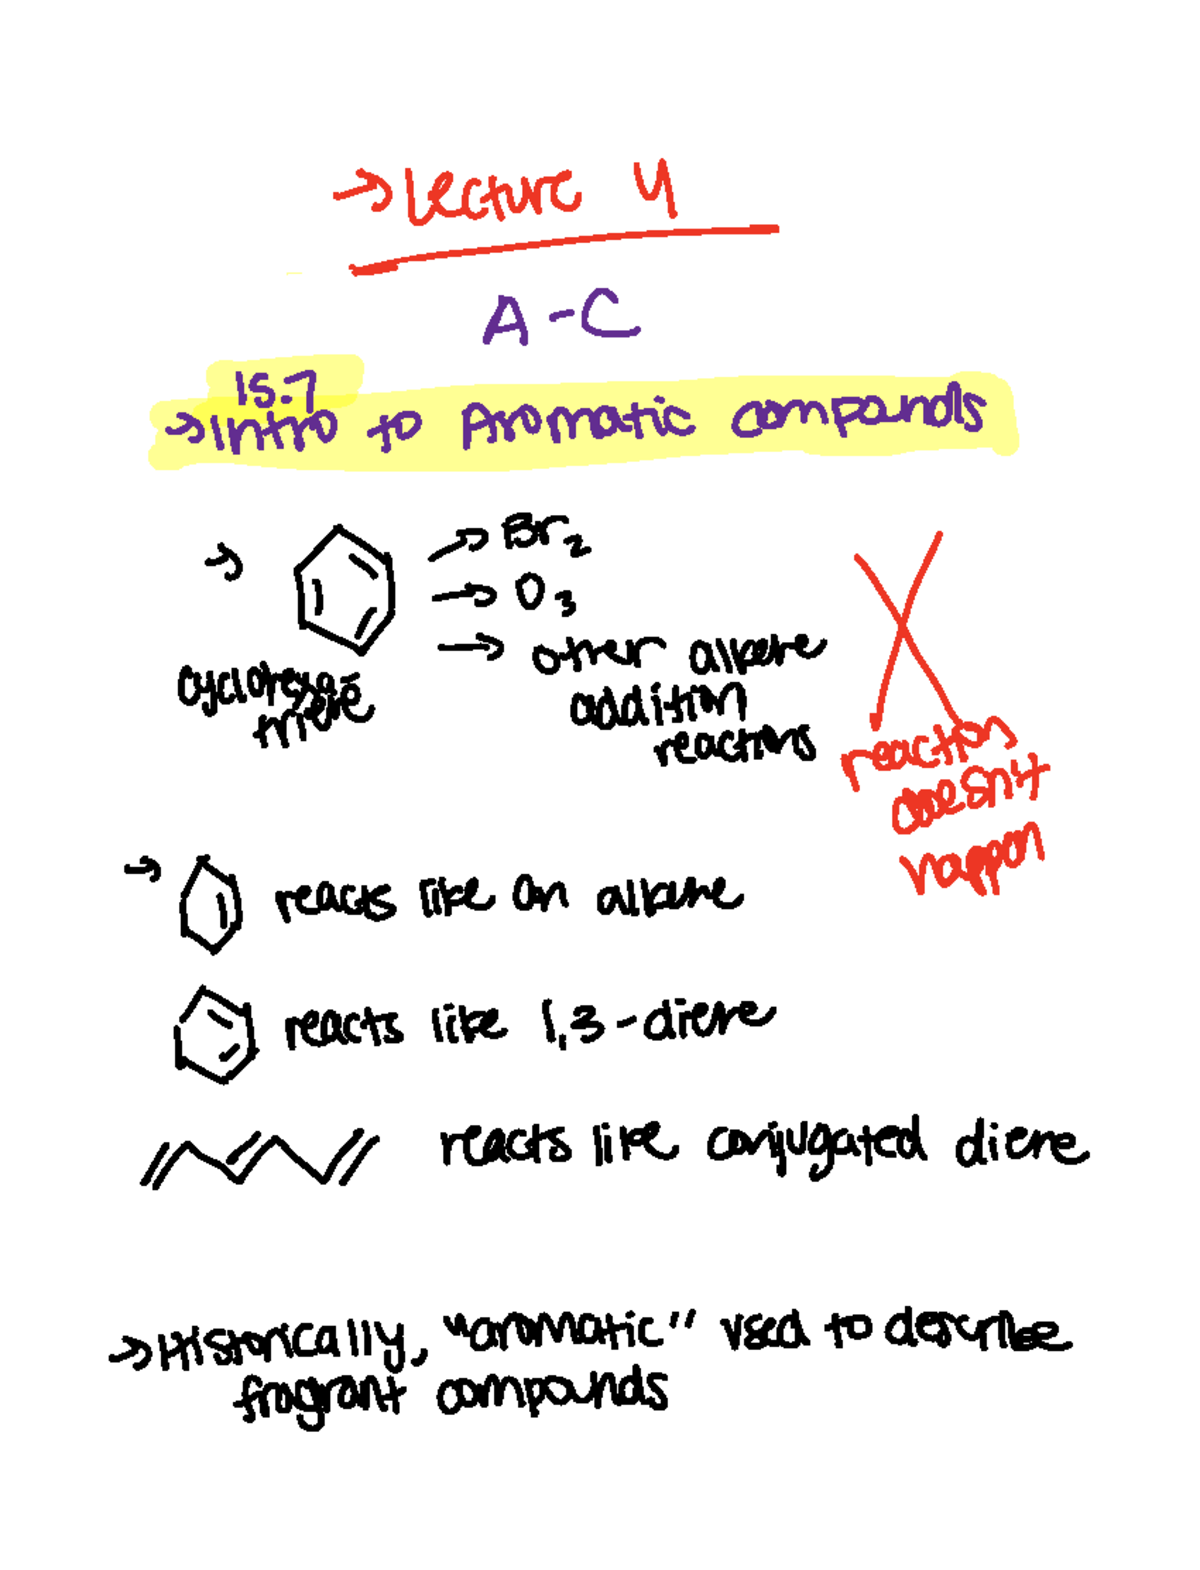 → Lecture 4
A-C
15.7
→ Intro to Aromatic compounds
→ → Br2
→ O3
→ other alkene
addition
reactions
cyclohexa-
triene
reaction
doesn't
happen
→ reacts like an alkene
reacts like 1,3-diene
reacts like conjugated diene
→ Historically, "aromatic" used to describe
fragrant compounds